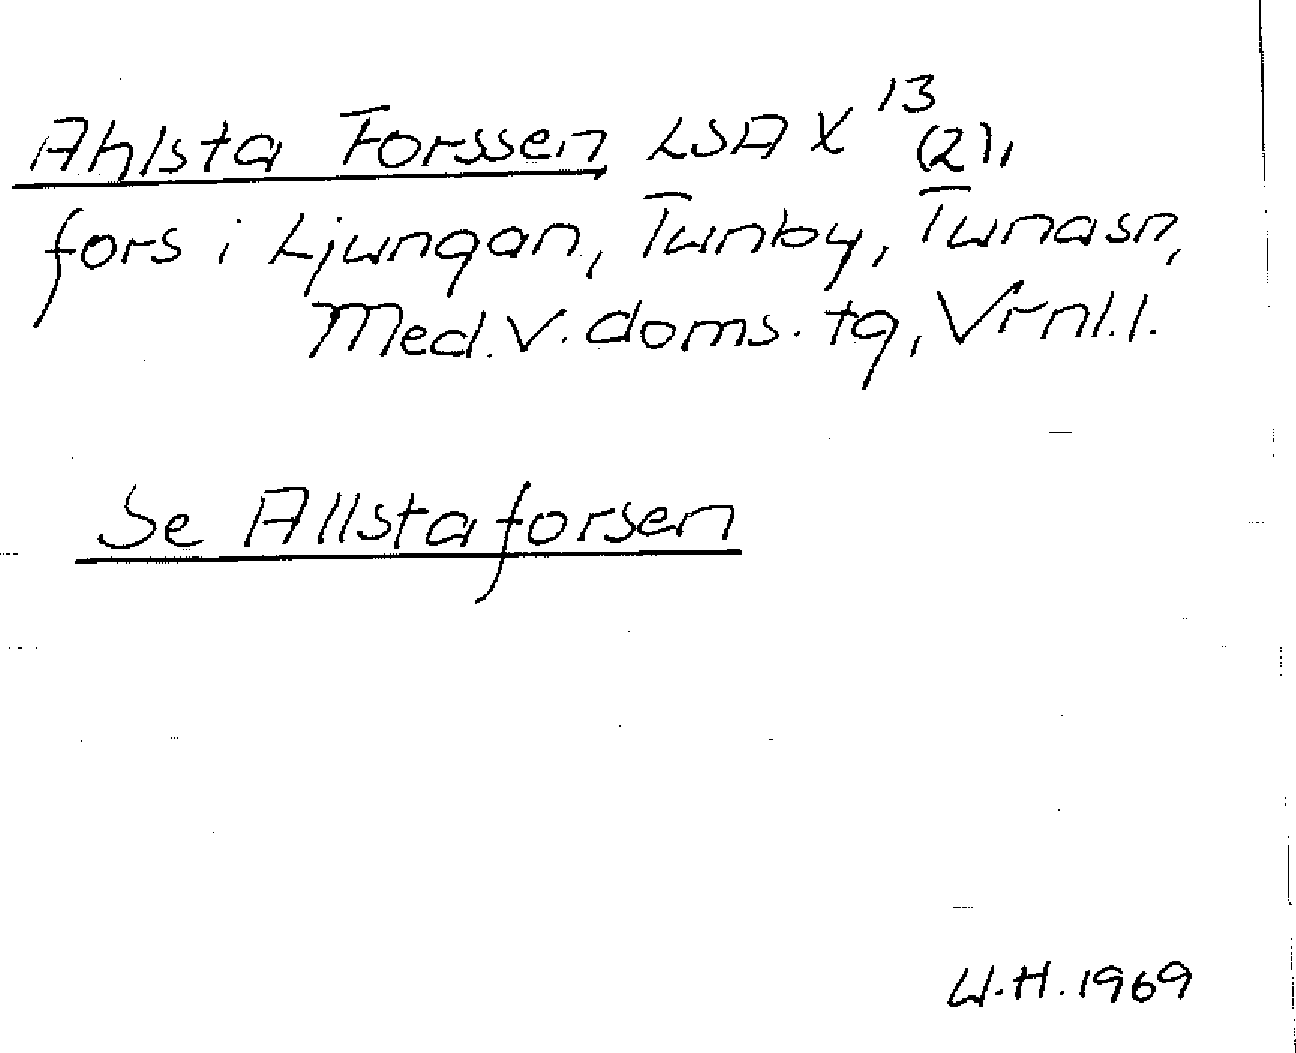 Ahlsta Forssen LSA X 13 (2),
fors i Ljungan, Tunby, Tuna sn,
Med. V. doms. tg, Vrnl. l.
Se Allstaforsen
W.H. 1969